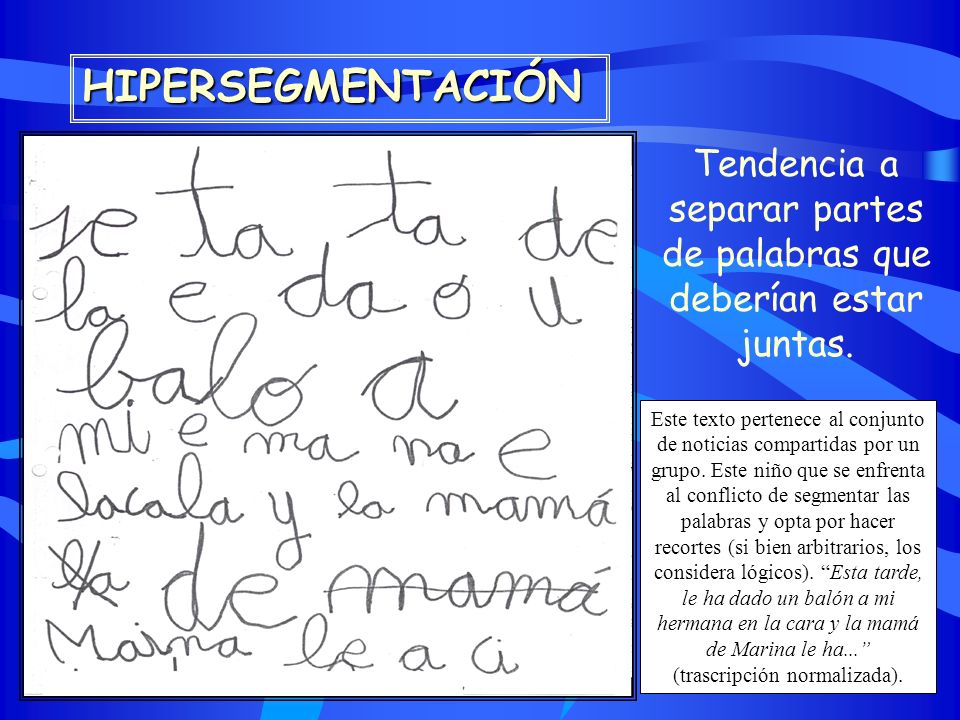 HIPERSEGMENTACIÓN
se ta ta de
la e da o u
balo a
mi e ma na e
lacala y la mamá
la de mamá
Marina le a ci
Tendencia a
separar partes
de palabras que
deberían estar
juntas.
Este texto pertenece al conjunto
de noticias compartidas por un
grupo. Este niño que se enfrenta
al conflicto de segmentar las
palabras y opta por hacer
recortes (si bien arbitrarios, los
considera lógicos). “Esta tarde,
le ha dado un balón a mi
hermana en la cara y la mamá
de Marina le ha...”
(trascripción normalizada).